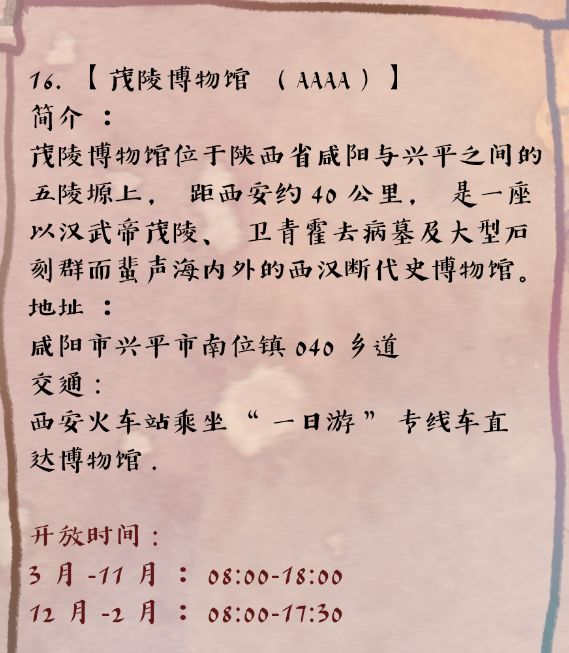 16. 【 茂陵博物馆 （ AAAA ） 】
简介 ：
茂陵博物馆位于陕西省咸阳与兴平之间的
五陵塬上， 距西安约 40 公里， 是一座
以汉武帝茂陵、 卫青霍去病墓及大型石
刻群而蜚声海内外的西汉断代史博物馆。
地址 ：
咸阳市兴平市南位镇 040 乡道
交通：
西安火车站乘坐 “ 一日游 ” 专线车直
达博物馆 .
开放时间：
3 月 -11 月 ： 08:00-18:00
12 月 -2 月 ： 08:00-17:30